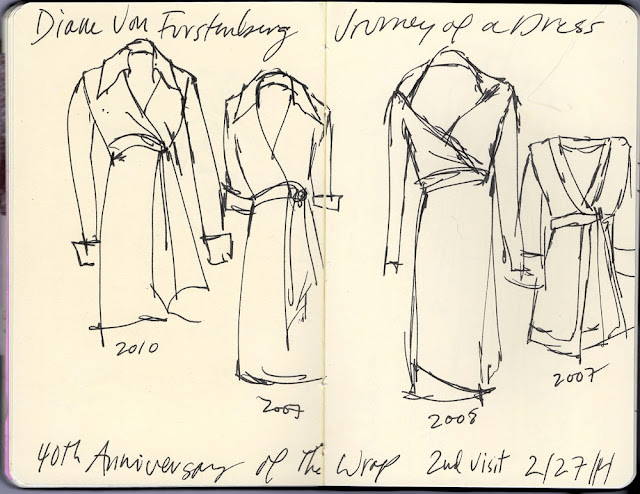 Diane Von Furstenberg Journey of a Dress
2010
2009
2008
2007
40th Anniversary of The Wrap 2nd visit 2/27/14